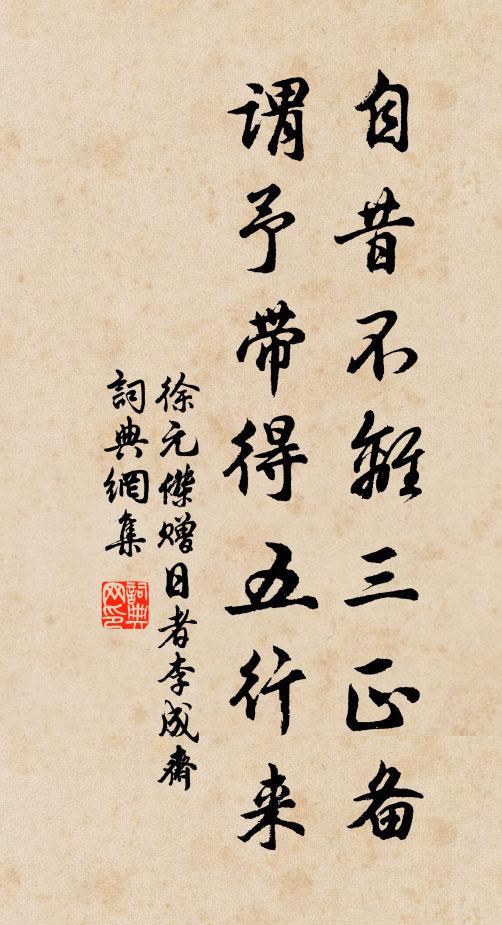 自昔不離三正备
谓予带得五行来
徐元傑赠日者李成齋
詞典網集
詞典网印